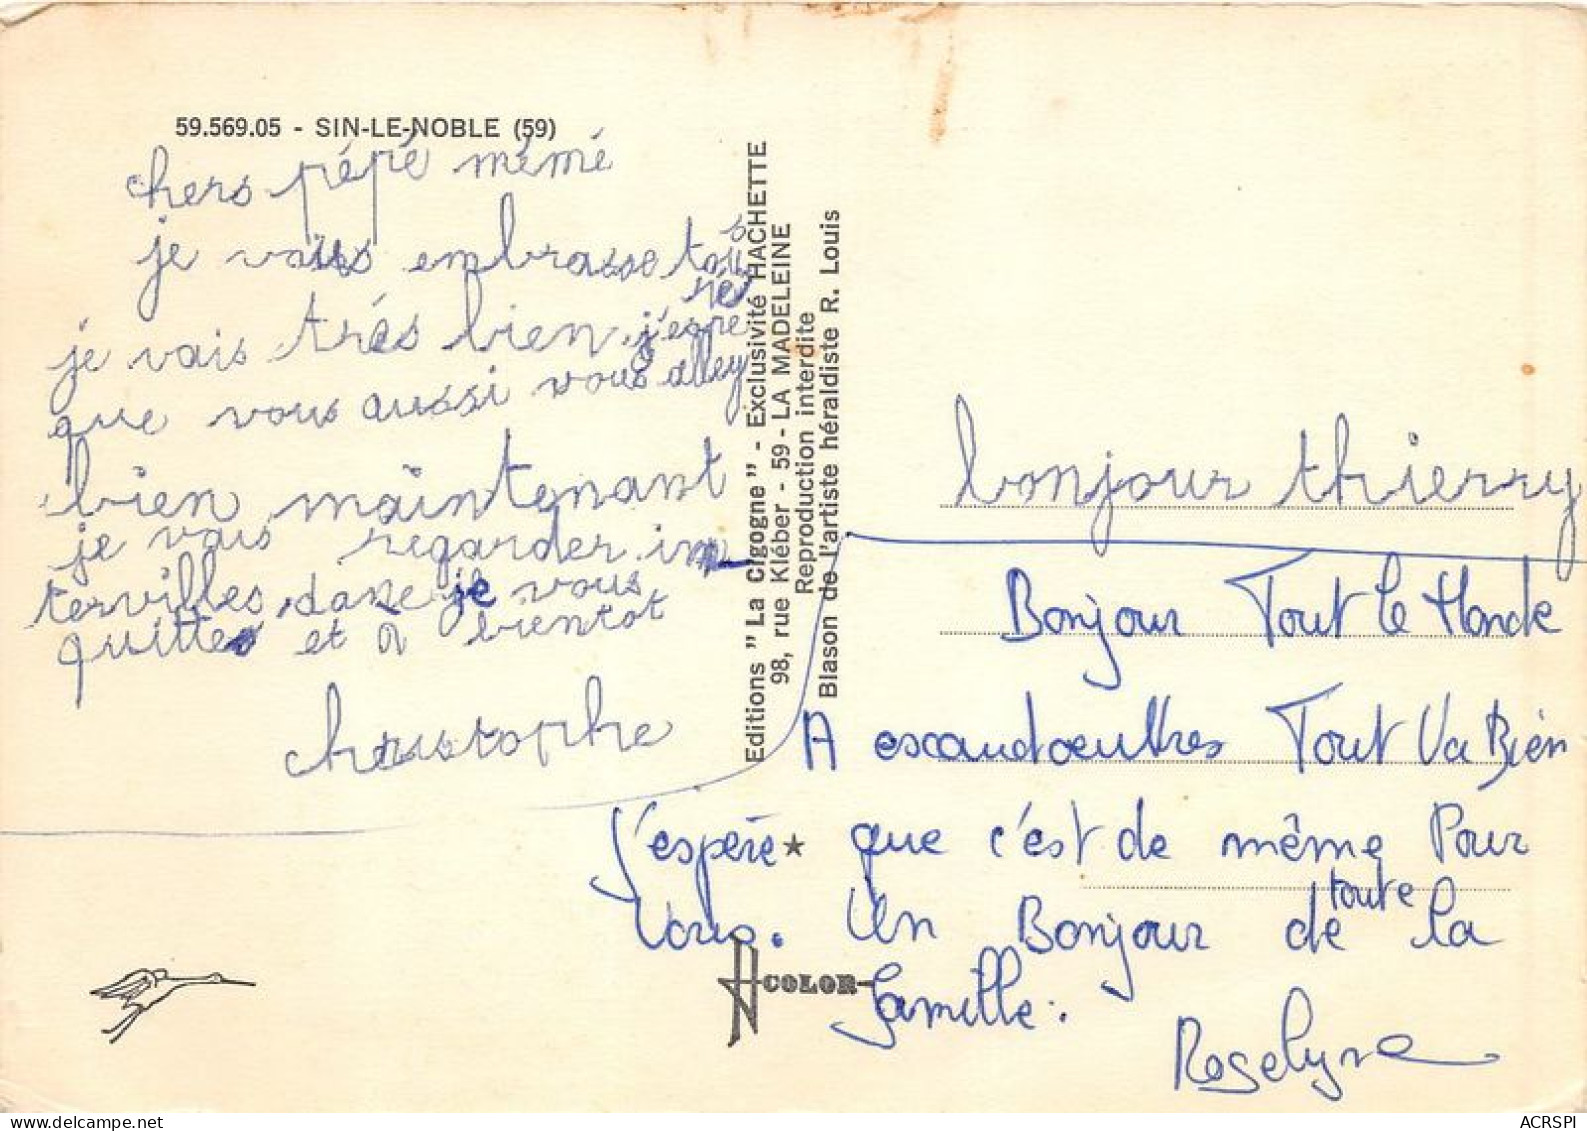 59.569.05 - SIN-LE-NOBLE (59)
chers pépé mémé
je vous embrasse tous
je vais trés bien j'espère
que vous aussi vous alley
bien maintenant
je vais regarder in
tervilles, danc je vous
quitte et à bientot
christophe
Editions "La Cigogne" - Exclusivité HACHETTE
98, rue Kléber - 59 - LA MADELEINE
Reproduction interdite
Blason de l'artiste héraldiste R. Louis
bonjour thierry
Bonjour Tout le Monde
A escaudoeuvres Tout Va Bien
J'espère que c'est de même Pour
Vous. Un Bonjour de toute la
famille.
Roselyne
COLOR
delcampe.net
ACRSPI